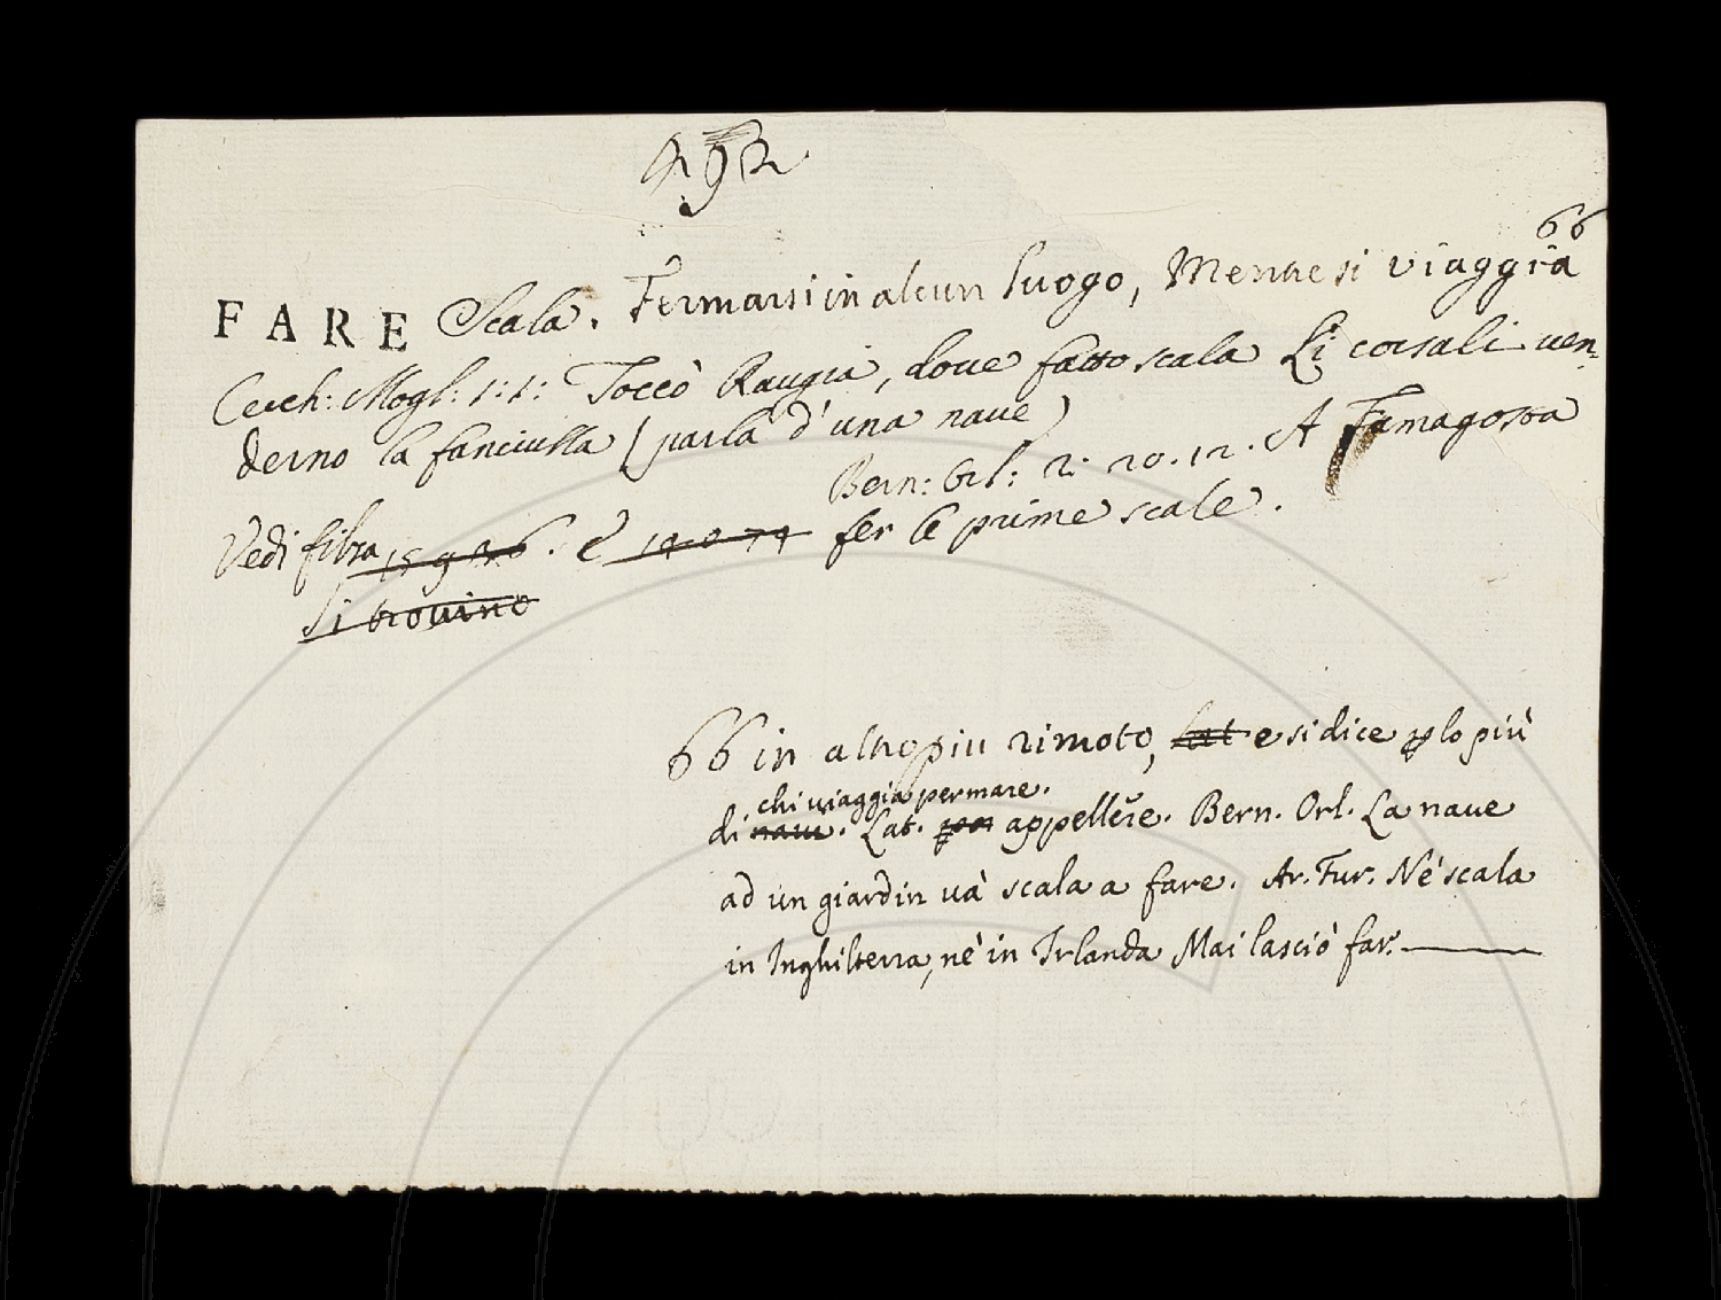 492
66
FARE Scala. Fermarsi in alcun luogo, Mentre si viaggia
Cecch: Mogl: 1: 1: Toccò Raugia, doue fatto scala Li corsali uen-
derno la fanciulla (parla d'una naue)
Bern: Orl: 2: 20. 12. A Famagosta
Vedi filza 15 9 26. e 14 0 74 fer le prime scale.
Si trovino
66 in altro piu rimoto, Lat e si dice ꝑ lo più
chi uiaggia per mare.
di naui. Lat. appellĕre. Bern. Orl. La naue
ad un giardin uà scala a fare. Ar. Fur. Né scala
in Inghilterra, nè in Irlanda Mai lasciò far.